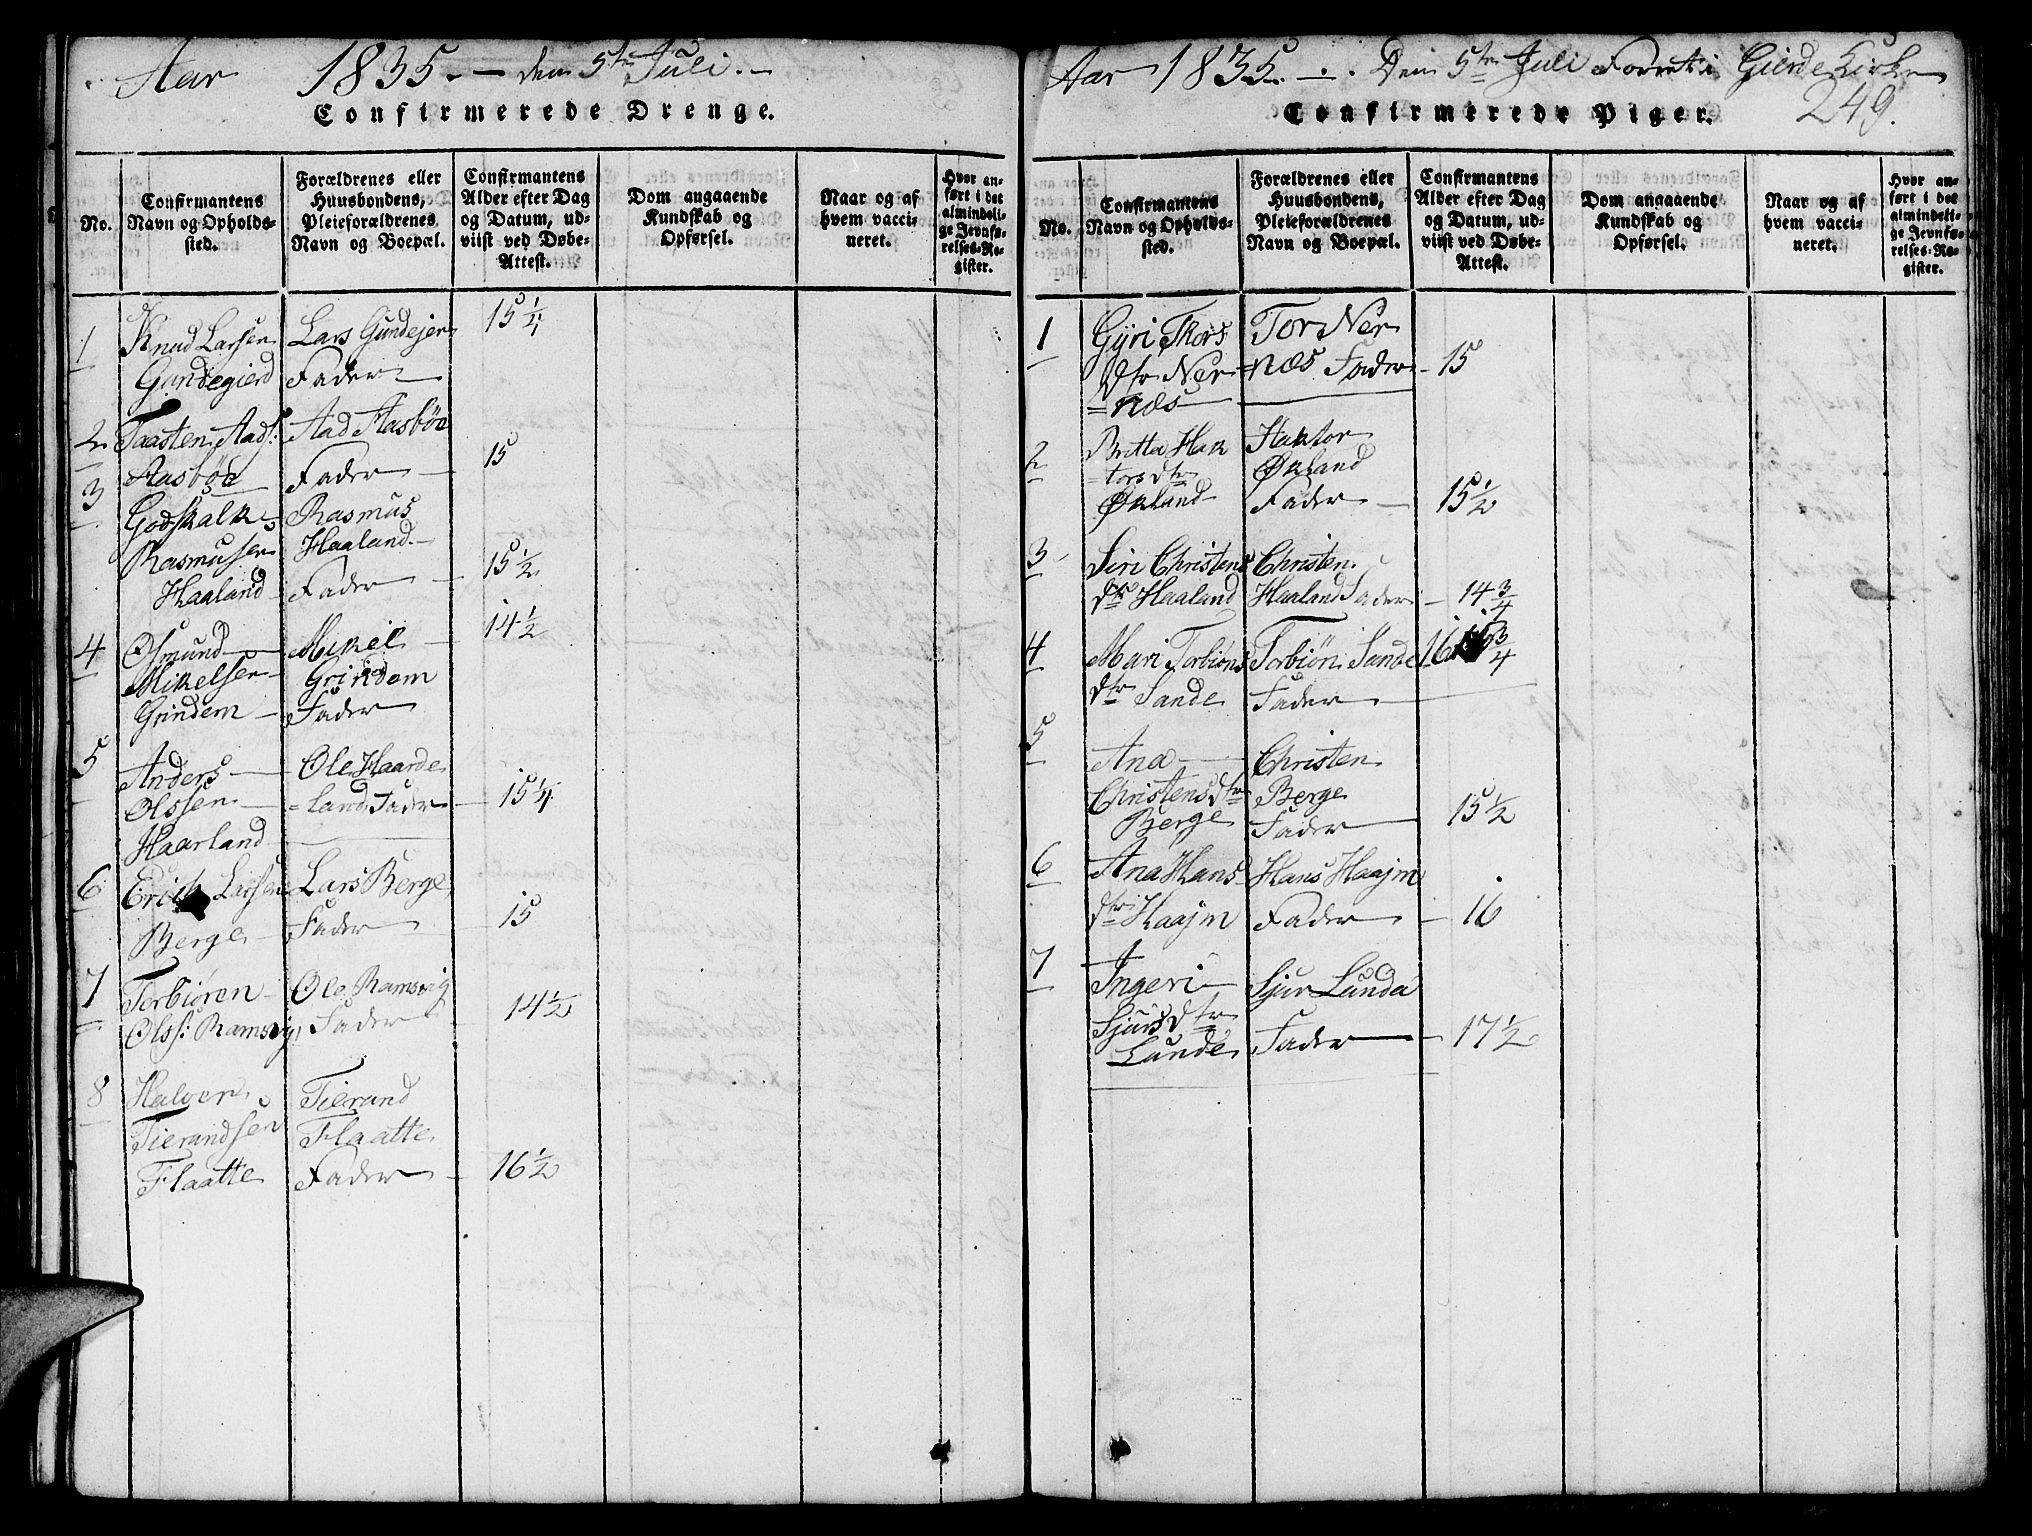 Aar 1835. – den 5te Juli. –
Confirmerede Drenge.
No.
Confirmantens
Navn og Opholds-
sted.
Forældrenes eller
Huusbondens,
Pleieforældrenes
Navn og Boepæl.
Confirmantens
Alder efter Dag
og Datum, ud-
viist ved Døbe-
Attest.
Dom angaaende
Kundskab og
Opførsel.
Naar og af
hvem vacci-
neret.
Hvor an-
ført i det
almindeli-
ge Jevnfø-
relses-Re-
gister.
1 Knud Larsen Lars Gundejer 15 1/4
Gundegierd Fader
2 Taasten Aads: Aad Aasbøe
Aasbøe Fader 15
3 Godskalk Rasmus
Rasmusen Haaland.
Haaland Fader 15 1/2
4 Osmund Mikel 14 1/2
Mikelsen Grindem
Grindem Fader
5 Anders Ole Haarde
Olssen =land Fader 15 1/4
Haarland
6 Erick Larsen Lars Berge
Berge Fader 15
7 Torbiøren Ole Ramsvig
Olss: Ramsvig Fader 14 1/2
8 Halvor Tierand
Tierandsen Flaatte
Flaatte Fader 16 1/2
Aar 1835. . Den 5te Juli Forret: i Gierde Kirke
249.
Confirmerede Piger.
No.
Confirmantens
Navn og Opholds-
sted.
Forældrenes eller
Huusbondens,
Pleieforældrenes
Navn og Boepæl.
Confirmantens
Alder efter Dag
og Datum, ud-
viist ved Døbe-
Attest.
Dom angaaende
Kundskab og
Opførsel.
Naar og af
hvem vacci-
neret.
Hvor an-
ført i det
almindeli-
ge Jevnfø-
relses-Re-
gister.
1 Gÿri Thors Tor Ner
Dtr Ner =næs Fader 15
=næs
2 Britta Hak Haktor
tors dtr Økland
Økland Fader 15 1/2
3 Siri Christens Christen
dtr Haaland Haaland Fader 14 3/4
4 Mari Torbiøns Torbiøn Sande 16 3/4
dtr Sande Fader
5 Ana Christen
Christensdtr Berge
Berge Fader 15 1/2
6 Ana Hans Hans Haajm
dtr Haajm Fader 16
7 Ingeri Sjur Lunde
Sjurs dtr
Lunde Fader 17 1/2